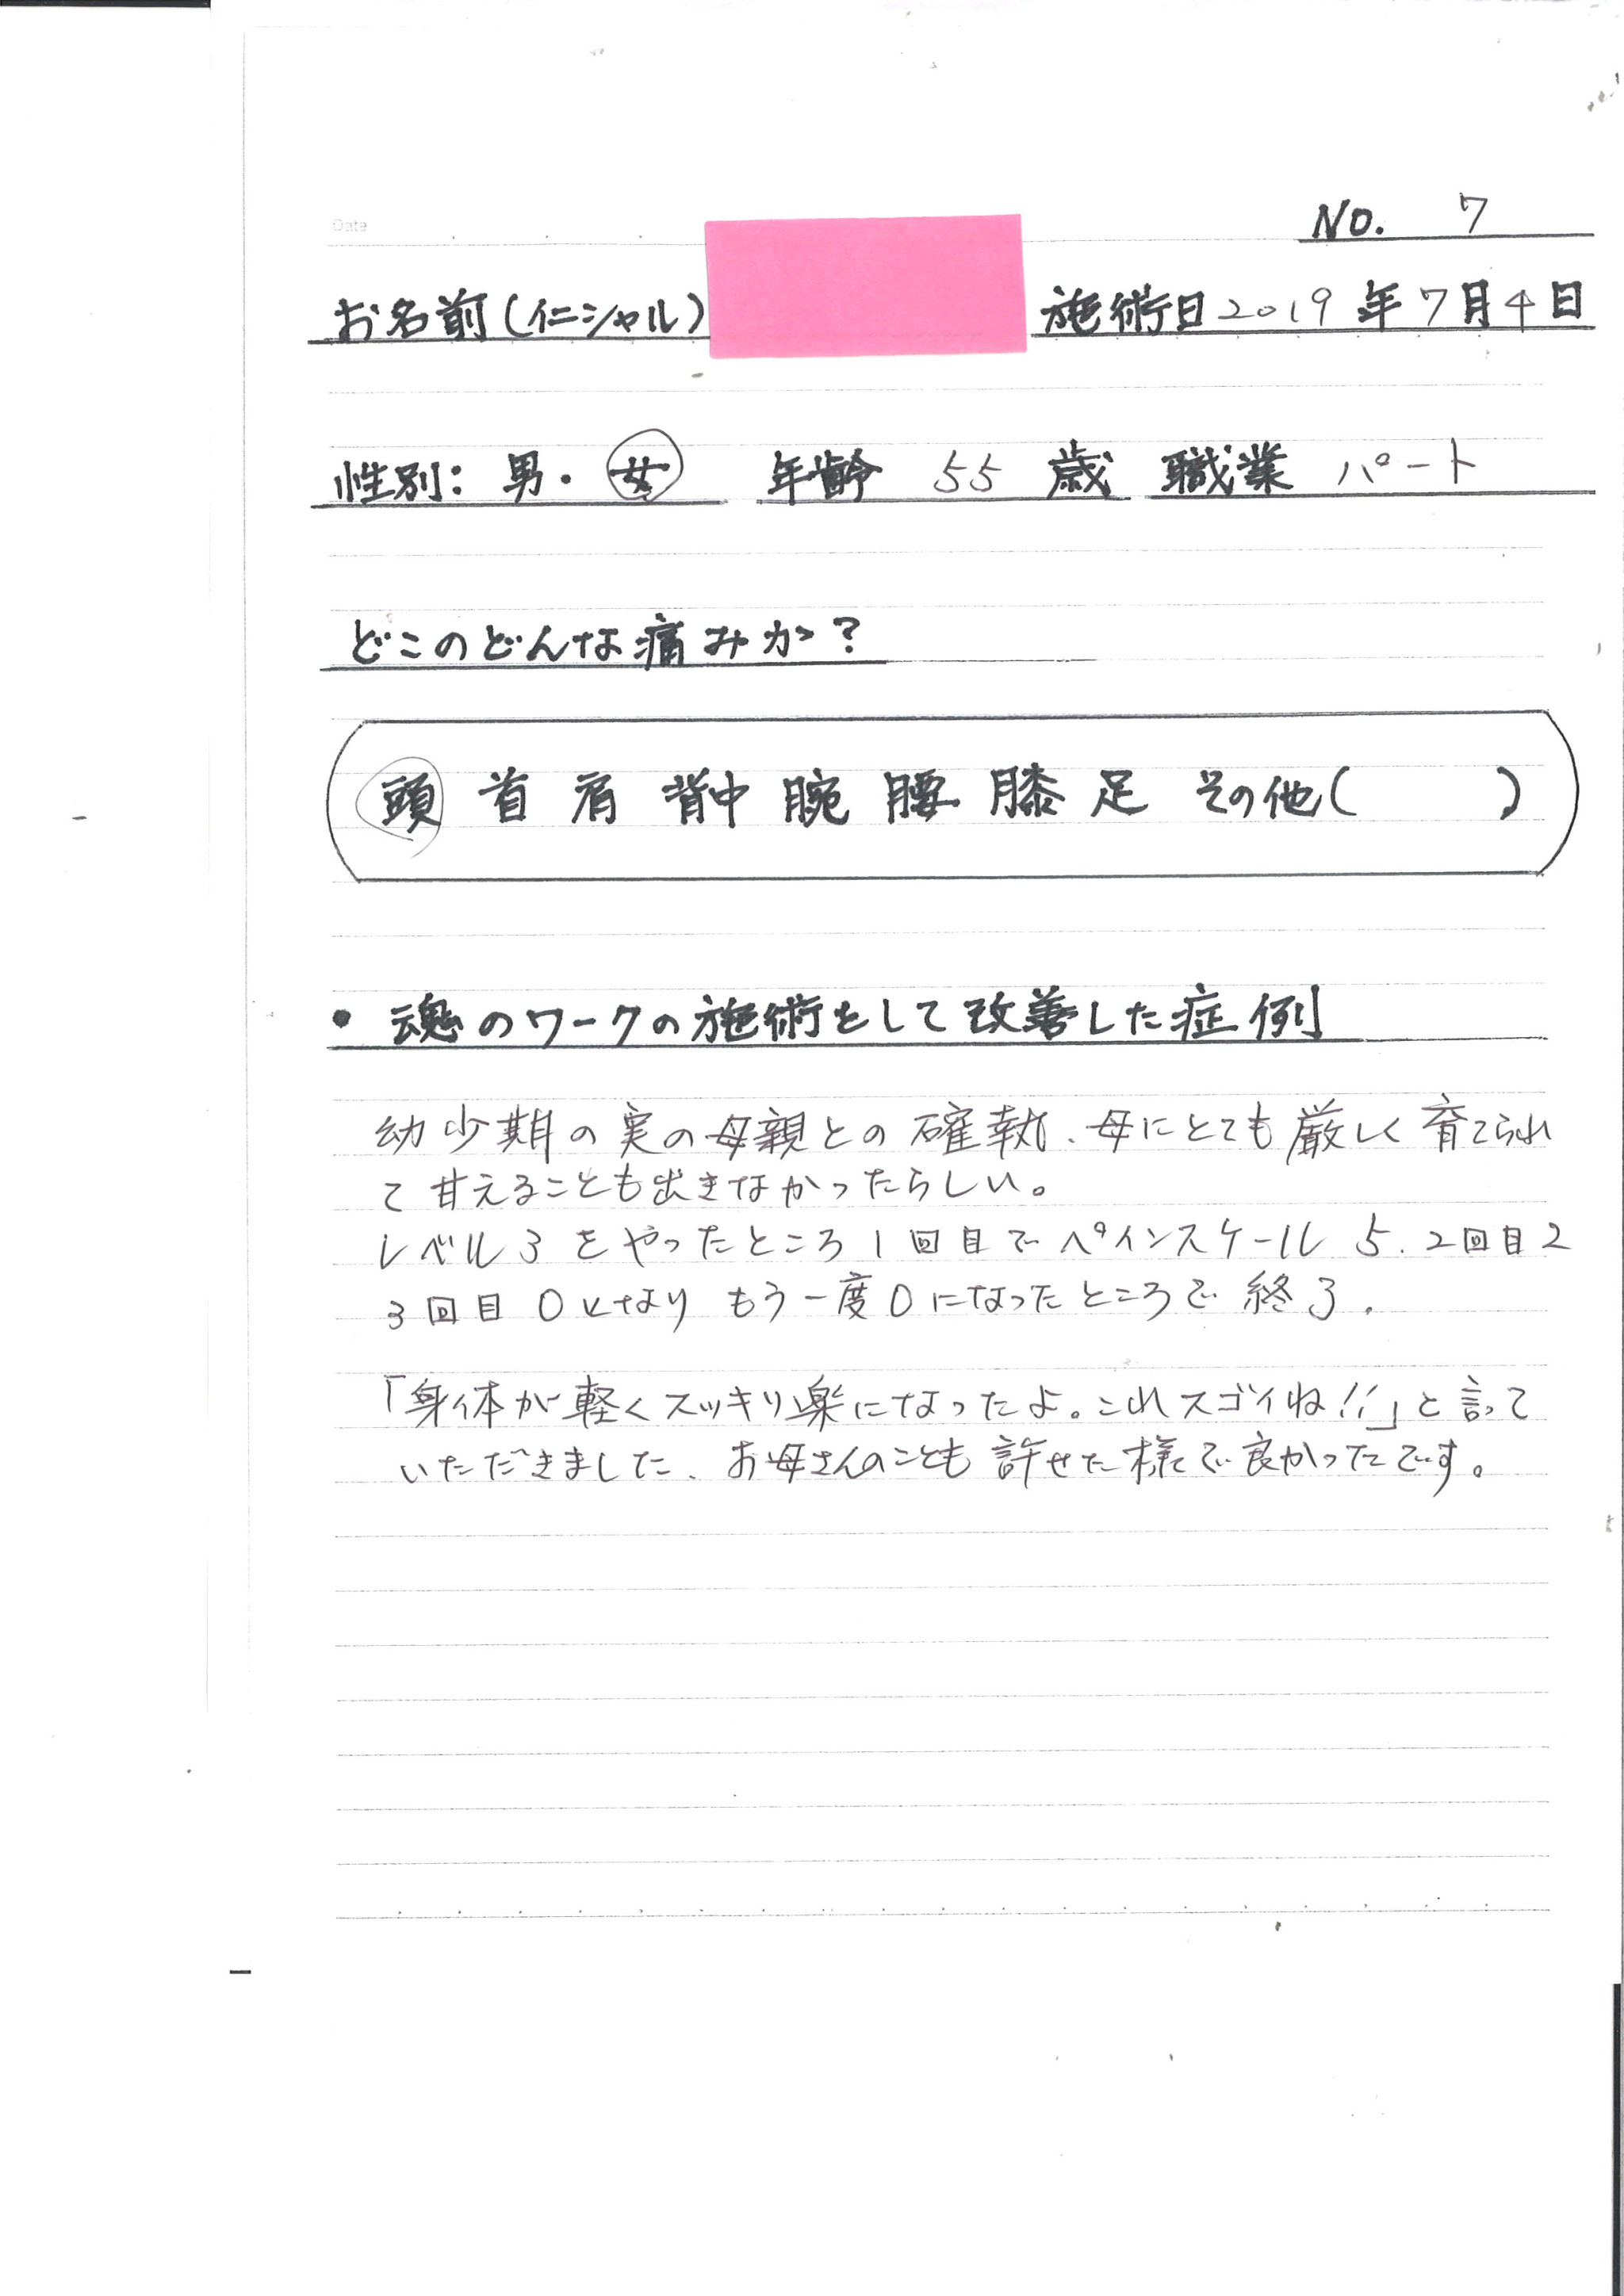 Date
No. 7
お名前(イニシャル) 施術日 2019年7月4日
性別: 男・女 年齢 55 歳 職業 パート
どこのどんな痛みか?
頭 首 肩 背中 腕 腰 膝 足 その他( )
・魂のワークの施術をして改善した症例
幼少期の実の母親との確執、母にとても厳しく育てられ
て甘えることも出きなかったらしい。
レベル3をやったところ1回目でペインスケール5.2回目2
3回目0となりもう一度0になったところで終了.
「身体が軽くスッキリ楽になったよ。これスゴイね!!」と言って
いただきました、お母さんのことも許せた様で良かったです。